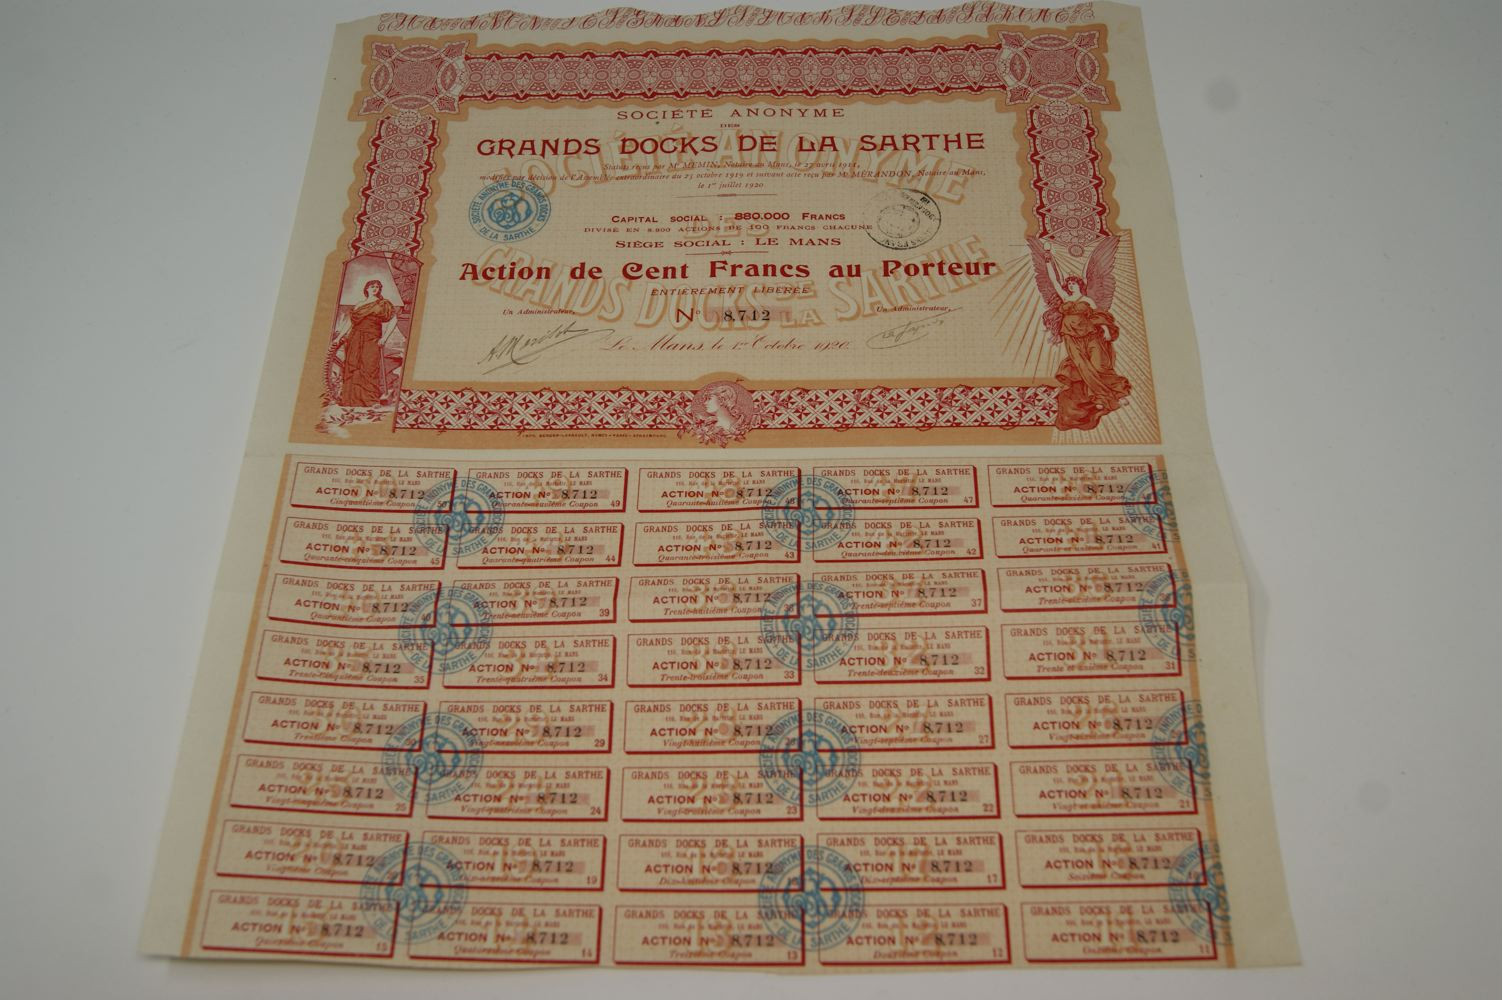 SOCIÉTÉ ANONYME
DES
GRANDS DOCKS DE LA SARTHE
Statuts reçus par Me MEMIN, Notaire au Mans, le 27 avril 1911,
modifiés par décision de l'Assemblée extraordinaire du 25 octobre 1919 et suivant acte reçu par Me MÉRANDON, Notaire au Mans,
le 1er juillet 1920
CAPITAL SOCIAL : 880.000 FRANCS
DIVISÉ EN 8.800 ACTIONS DE 100 FRANCS CHACUNE
SIÈGE SOCIAL : LE MANS
Action de Cent Francs au Porteur
ENTIÈREMENT LIBÉRÉE
Un Administrateur, No 8.712 Un Administrateur,
Le Mans, le 1er Octobre 1920
SOCIÉTÉ ANONYME DES GRANDS DOCKS DE LA SARTHE
IMP. BERGER-LEVRAULT, NANCY-PARIS-STRASBOURG
GRANDS DOCKS DE LA SARTHE
ACTION No 8.712
Cinquantième Coupon 50
GRANDS DOCKS DE LA SARTHE
ACTION No 8.712
Quarante-neuvième Coupon 49
GRANDS DOCKS DE LA SARTHE
ACTION No 8.712
Quarante-huitième Coupon 48
GRANDS DOCKS DE LA SARTHE
ACTION No 8.712
Quarante-septième Coupon 47
GRANDS DOCKS DE LA SARTHE
ACTION No 8.712
Quarante-sixième Coupon
GRANDS DOCKS DE LA SARTHE
ACTION No 8.712
Quarante-cinquième Coupon 45
GRANDS DOCKS DE LA SARTHE
ACTION No 8.712
Quarante-quatrième Coupon 44
GRANDS DOCKS DE LA SARTHE
ACTION No 8.712
Quarante-troisième Coupon 43
GRANDS DOCKS DE LA SARTHE
ACTION No 8.712
Quarante-deuxième Coupon 42
GRANDS DOCKS DE LA SARTHE
ACTION No 8.712
Quarante et unième Coupon 41
GRANDS DOCKS DE LA SARTHE
ACTION No 8.712
Quarantième Coupon 40
GRANDS DOCKS DE LA SARTHE
ACTION No 8.712
Trente-neuvième Coupon 39
GRANDS DOCKS DE LA SARTHE
ACTION No 8.712
Trente-huitième Coupon 38
GRANDS DOCKS DE LA SARTHE
ACTION No 8.712
Trente-septième Coupon 37
GRANDS DOCKS DE LA SARTHE
ACTION No 8.712
Trente-sixième Coupon 36
GRANDS DOCKS DE LA SARTHE
ACTION No 8.712
Trente-cinquième Coupon 35
GRANDS DOCKS DE LA SARTHE
ACTION No 8.712
Trente-quatrième Coupon 34
GRANDS DOCKS DE LA SARTHE
ACTION No 8.712
Trente-troisième Coupon 33
GRANDS DOCKS DE LA SARTHE
ACTION No 8.712
Trente-deuxième Coupon 32
GRANDS DOCKS DE LA SARTHE
ACTION No 8.712
Trente et unième Coupon 31
GRANDS DOCKS DE LA SARTHE
ACTION No 8.712
Trentième Coupon 30
GRANDS DOCKS DE LA SARTHE
ACTION No 8.712
Vingt-neuvième Coupon 29
GRANDS DOCKS DE LA SARTHE
ACTION No 8.712
Vingt-huitième Coupon 28
GRANDS DOCKS DE LA SARTHE
ACTION No 8.712
Vingt-septième Coupon 27
GRANDS DOCKS DE LA SARTHE
ACTION No 8.712
Vingt-sixième Coupon
GRANDS DOCKS DE LA SARTHE
ACTION No 8.712
Vingt-cinquième Coupon 25
GRANDS DOCKS DE LA SARTHE
ACTION No 8.712
Vingt-quatrième Coupon 24
GRANDS DOCKS DE LA SARTHE
ACTION No 8.712
Vingt-troisième Coupon 23
GRANDS DOCKS DE LA SARTHE
ACTION No 8.712
Vingt-deuxième Coupon 22
GRANDS DOCKS DE LA SARTHE
ACTION No 8.712
Vingt et unième Coupon 21
GRANDS DOCKS DE LA SARTHE
ACTION No 8.712
Vingtième Coupon
GRANDS DOCKS DE LA SARTHE
ACTION No 8.712
Dix-neuvième Coupon 19
GRANDS DOCKS DE LA SARTHE
ACTION No 8.712
Dix-huitième Coupon 18
GRANDS DOCKS DE LA SARTHE
ACTION No 8.712
Dix-septième Coupon 17
GRANDS DOCKS DE LA SARTHE
ACTION No 8.712
Seizième Coupon 16
GRANDS DOCKS DE LA SARTHE
ACTION No 8.712
Quinzième Coupon 15
GRANDS DOCKS DE LA SARTHE
ACTION No 8.712
Quatorzième Coupon 14
GRANDS DOCKS DE LA SARTHE
ACTION No 8.712
Treizième Coupon 13
GRANDS DOCKS DE LA SARTHE
ACTION No 8.712
Douzième Coupon 12
GRANDS DOCKS DE LA SARTHE
ACTION No 8.712
Onzième Coupon 11